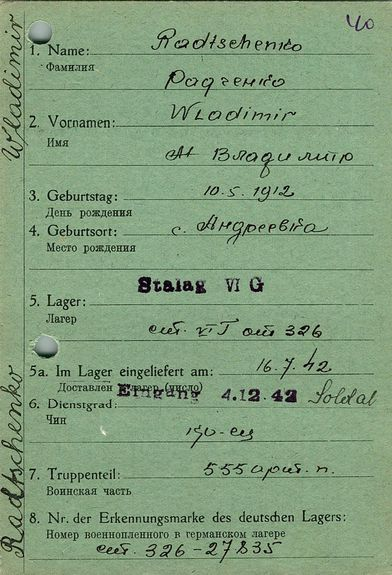 40
1. Name: Radtschenko
Фамилия
Радченко
2. Vornamen: Wladimir
Имя
Владимир
3. Geburtstag: 10.5.1912
День рождения
4. Geburtsort: с. Андреевка
Место рождения
Stalag VI G
5. Lager:
Лагерь
326
5a. Im Lager eingeliefert am: 16.7.42
Доставлен в лагерь (число)
Eingang 4.12.42 Soldat
6. Dienstgrad:
Чин
7. Truppenteil: 555 арт. п.
Воинская часть
8. Nr. der Erkennungsmarke des deutschen Lagers:
Номер военнопленного в германском лагере
326-27835
Radtschenko Wladimir